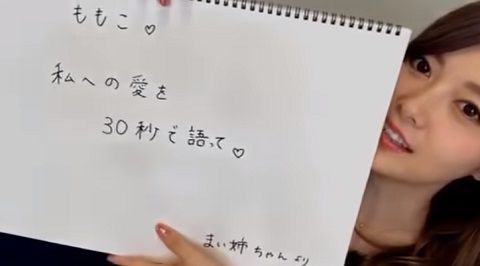 ももこ♡
私への愛を
30秒で語って♡
まい姉ちゃんより